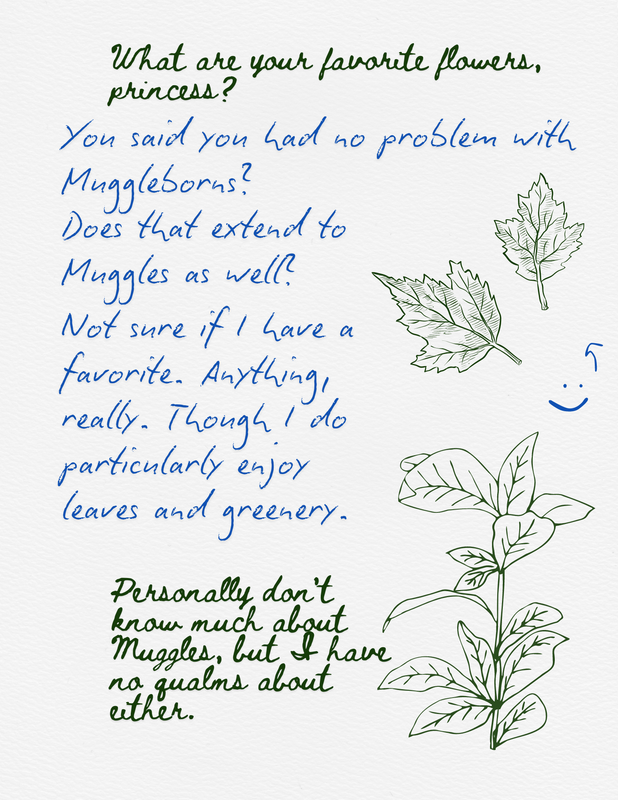 What are your favorite flowers,
princess?
You said you had no problem with
Muggleborns?
Does that extend to
Muggles as well?
Not sure if I have a
favorite. Anything,
really. Though I do
particularly enjoy
leaves and greenery.
Personally don't
know much about
Muggles, but I have
no qualms about
either.